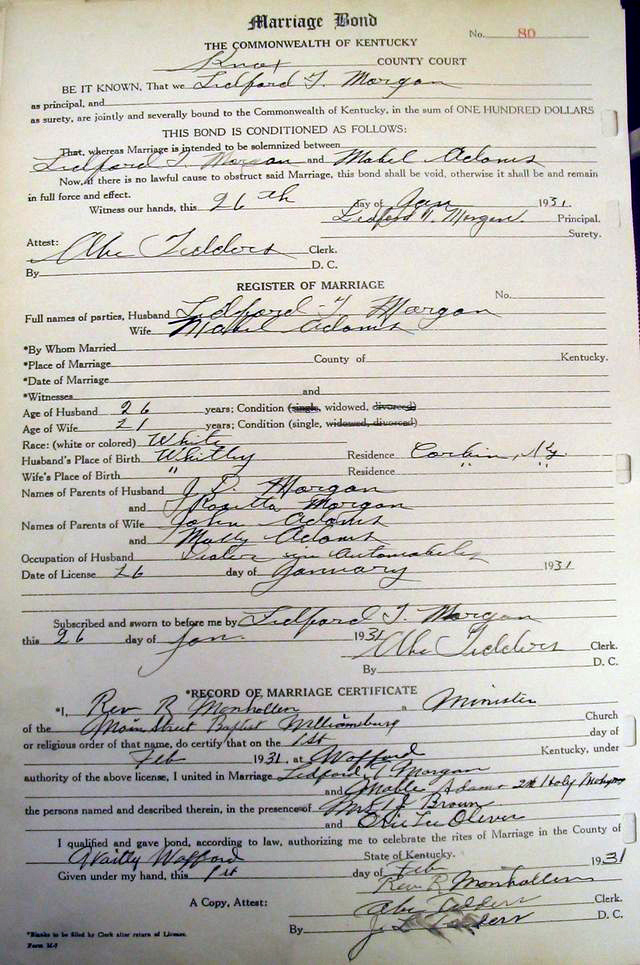 Marriage Bond
No. 80
THE COMMONWEALTH OF KENTUCKY
Knox COUNTY COURT
BE IT KNOWN, That we Ledford T. Morgan
as principal, and
as surety, are jointly and severally bound to the Commonwealth of Kentucky, in the sum of ONE HUNDRED DOLLARS
THIS BOND IS CONDITIONED AS FOLLOWS:
That, whereas Marriage is intended to be solemnized between
Ledford T. Morgan and Mabel Adams
Now, if there is no lawful cause to obstruct said Marriage, this bond shall be void, otherwise it shall be and remain
in full force and effect.
Witness our hands, this 26th day of Jan 1931.
Ledford T. Morgan. Principal.
Surety.
Attest: Abe Tedders Clerk.
By D. C.
REGISTER OF MARRIAGE
No.
Full names of parties, Husband Ledford T Morgan
Wife Mabel Adams
*By Whom Married
*Place of Marriage County of Kentucky.
*Date of Marriage
*Witnesses and
Age of Husband 26 years; Condition (single, widowed, divorced)
Age of Wife 21 years; Condition (single, widowed, divorced)
Race: (white or colored) White
Husband's Place of Birth Whitley Residence Corbin, Ky
Wife's Place of Birth " Residence " "
Names of Parents of Husband J. D. Morgan
and Rosetta Morgan
Names of Parents of Wife John Adams
and Molly Adams
Occupation of Husband Dealer in Automobiles
Date of License 26 day of January 1931
Subscribed and sworn to before me by Ledford T. Morgan
this 26 day of Jan. 1931
Abe Tedders Clerk.
By D. C.
*RECORD OF MARRIAGE CERTIFICATE
*I, Rev R Monhollen a Minister
of the Main Street Baptist Williamsburg Church
or religious order of that name, do certify that on the 1st day of
Feb 1931, at Wofford Kentucky, under
authority of the above license, I united in Marriage Ledford T Morgan
and Mable Adams
the persons named and described therein, in the presence of Mrs Brown
and Oliver
I qualified and gave bond, according to law, authorizing me to celebrate the rites of Marriage in the County of
Wofford State of Kentucky.
Given under my hand, this 1st day of Feb 1931
Rev. R Monhollen
A Copy, Attest: Abe Tedders Clerk.
By J. L. Tedders D. C.
*Blanks to be filled by Clerk after return of License.
Form M-1